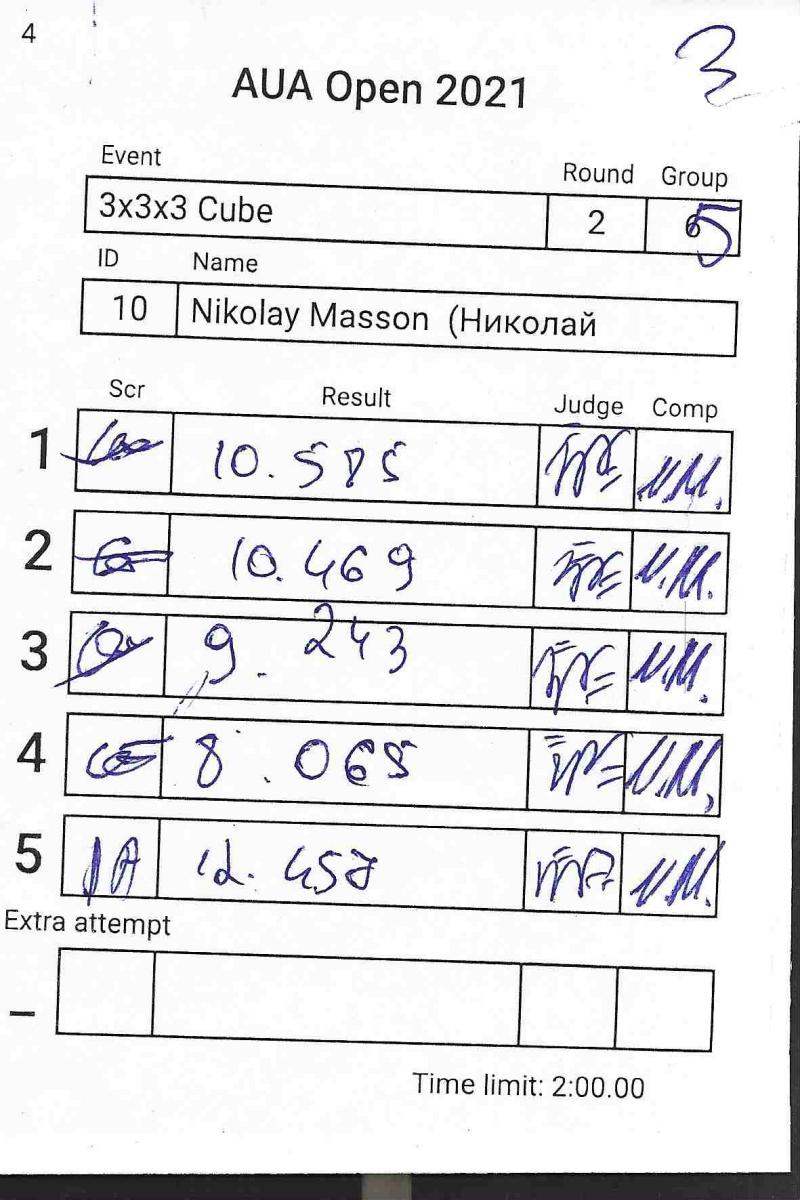 4
3
AUA Open 2021
Event Round Group
3x3x3 Cube 2 5
ID Name
10 Nikolay Masson (Николай
Scr Result Judge Comp
1 10.585 N.M.
2 10.469 N.M.
3 9.243 N.M.
4 8.065 N.M.
5 12.457 N.M.
Extra attempt
–
Time limit: 2:00.00